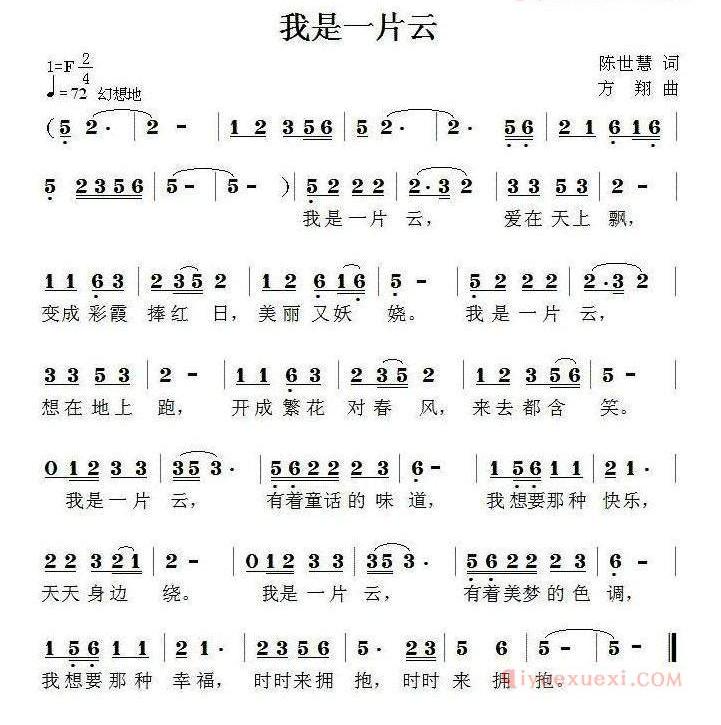 我是一片云
1=F 2/4
♩=72 幻想地
陈世慧 词
方 翔 曲
( 5 2· | 2 - | 1 2 3 5 6 | 5 2· | 2· 5 6 | 2 1 6 1 6 |
5 2 3 5 6 | 5 - | 5 - ) | 5 2 2 2 | 2·3 2 | 3 3 5 3 | 2 - |
我是一片 云， 爱在天上 飘，
1 1 6 3 | 2 3 5 2 | 2 2 6 1 6 | 5 - | 5 2 2 2 | 2·3 2 |
变成彩霞 捧红 日，美丽又妖 娆。 我是一片 云，
3 3 5 3 | 2 - | 1 1 6 3 | 2 3 5 2 | 1 2 3 5 6 | 5 - |
想在地上 跑， 开成繁花 对春 风，来去都含 笑。
0 1 2 3 3 | 3 5 3· | 5 6 2 2 2 3 | 6 - | 1 5 6 1 1 | 2 1 |
我是一片 云， 有着童话的味 道， 我想要那种 快乐，
2 2 3 2 1 | 2 - | 0 1 2 3 3 | 3 5 3· | 5 6 2 2 2 3 | 6 - |
天天身边 绕。 我是一片 云， 有着美梦的色 调，
1 5 6 1 1 | 2 2 | 2 3 2 3 | 5 - | 2 3 5 6 | 5 - | 5 - ‖
我想要那种 幸福，时时来拥 抱，时时来 拥 抱。
iyuexuexi.com